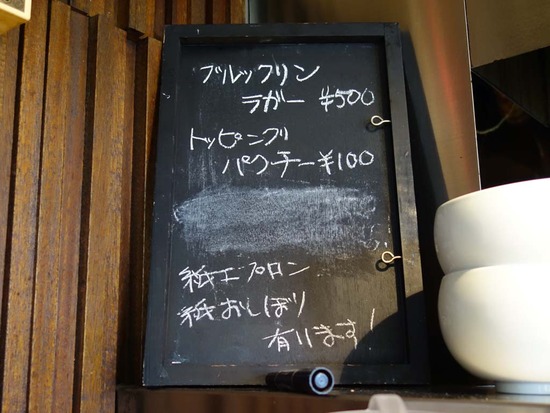 ブルックリン
ラガー ¥500
トッピング
パクチー¥100
紙エプロン
紙おしぼり
有ります!